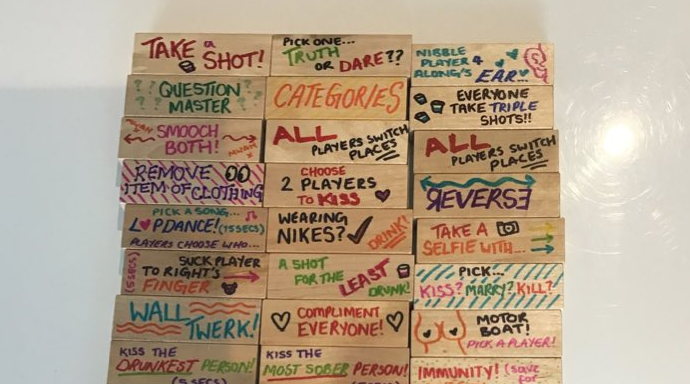 TAKE a SHOT!
PICK ONE...
TRUTH
OR DARE??
NIBBLE
PLAYER 4
ALONG'S
EAR...
QUESTION
MASTER
CATEGORIES
EVERYONE
TAKE TRIPLE
SHOTS!!
MWAH
SMOOCH
BOTH!
MWAH
ALL PLAYERS SWITCH
PLACES
ALL PLAYERS SWITCH
PLACES
REMOVE
ITEM OF CLOTHING
CHOOSE
2 PLAYERS
TO KISS
REVERSE
PICK A SONG...
LAPDANCE! (15SECS)
PLAYERS CHOOSE WHO...
WEARING
NIKES?
DRINK!
TAKE A
SELFIE WITH...
(5SECS)
SUCK PLAYER
TO RIGHT'S
FINGER
A SHOT
FOR THE LEAST
DRUNK!
PICK...
KISS? MARRY? KILL?
WALL
TWERK!
COMPLIMENT
EVERYONE!
MOTOR
BOAT!
PICK A PLAYER!
KISS THE
DRUNKEST PERSON!
(5SECS)
KISS THE
MOST SOBER PERSON!
IMMUNITY! (save
for